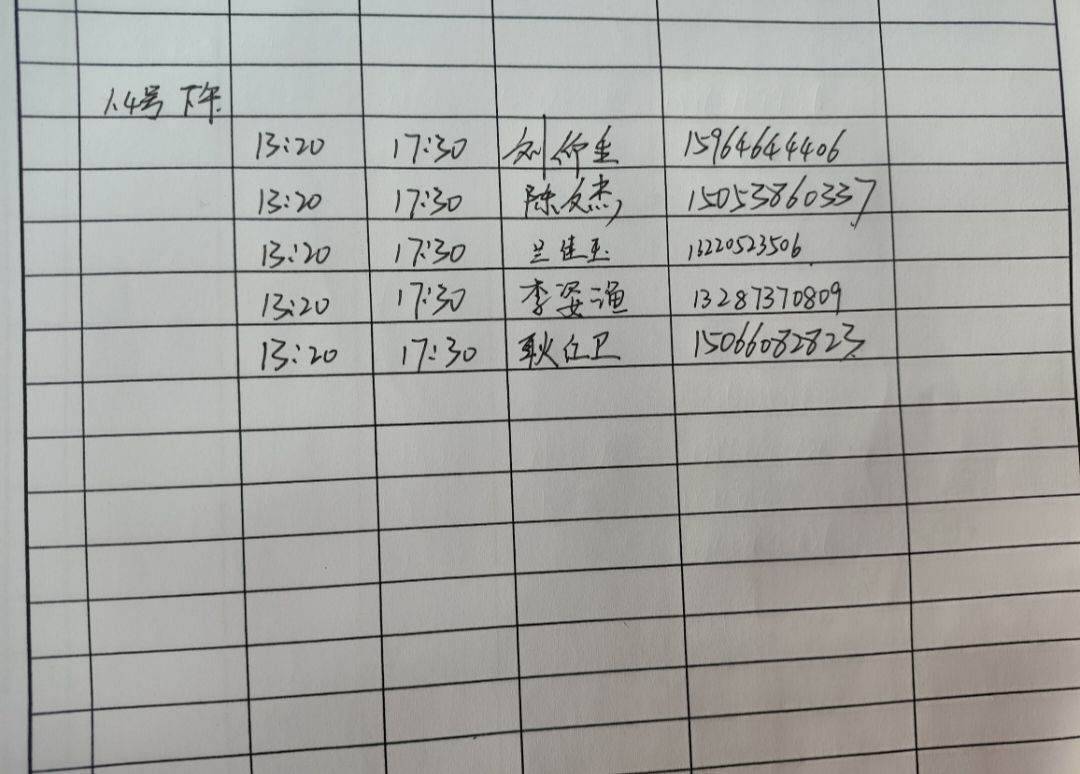 1.4号 下午
13:20 17:30 刘 15964644406
13:20 17:30 陈文杰 15053860337
13:20 17:30 兰佳玉 13220523506
13:20 17:30 李姿漫 13287370809
13:20 17:30 耿红卫 15066082823